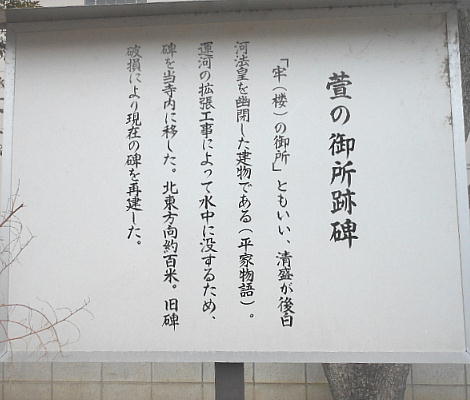 萱の御所跡碑
「牢（楼）の御所」ともいい、清盛が後白
河法皇を幽閉した建物である（平家物語）。
運河の拡張工事によって水中に没するため、
碑を当寺内に移した。北東方向約百米。旧碑
破損により現在の碑を再建した。